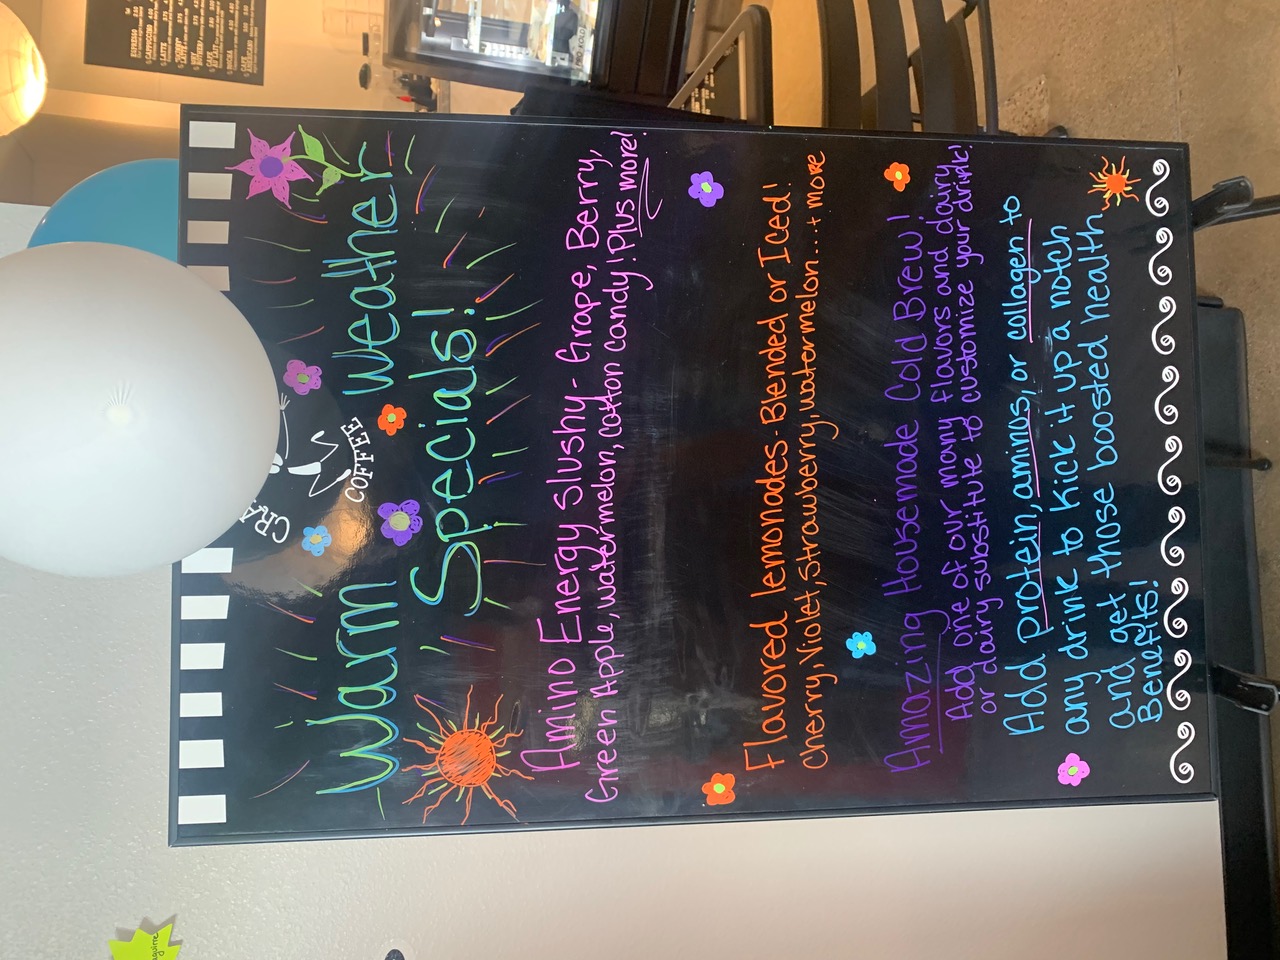 aguirre
CRA
COFFEE
Warm Weather
Specials!
Amino Energy Slushy - Grape, Berry,
Green Apple, watermelon, cotton candy! Plus more!
Flavored lemonades - Blended or Iced!
Cherry, Violet, Strawberry, watermelon... + more
Amazing Housemade Cold Brew!
Add one of our many flavors and dairy
or dairy substitute to customize your drink!
Add protein, aminos, or collagen to
any drink to kick it up a notch
and get those boosted health
Benefits!
ESPRESSO
CAPPUCCINO
LATTE
"SKINNY"
LATTE
WHY
BOTHER?
CAFE
AU LAIT
MOCHA
CAFE
AMERICANO
PRO-KOLD